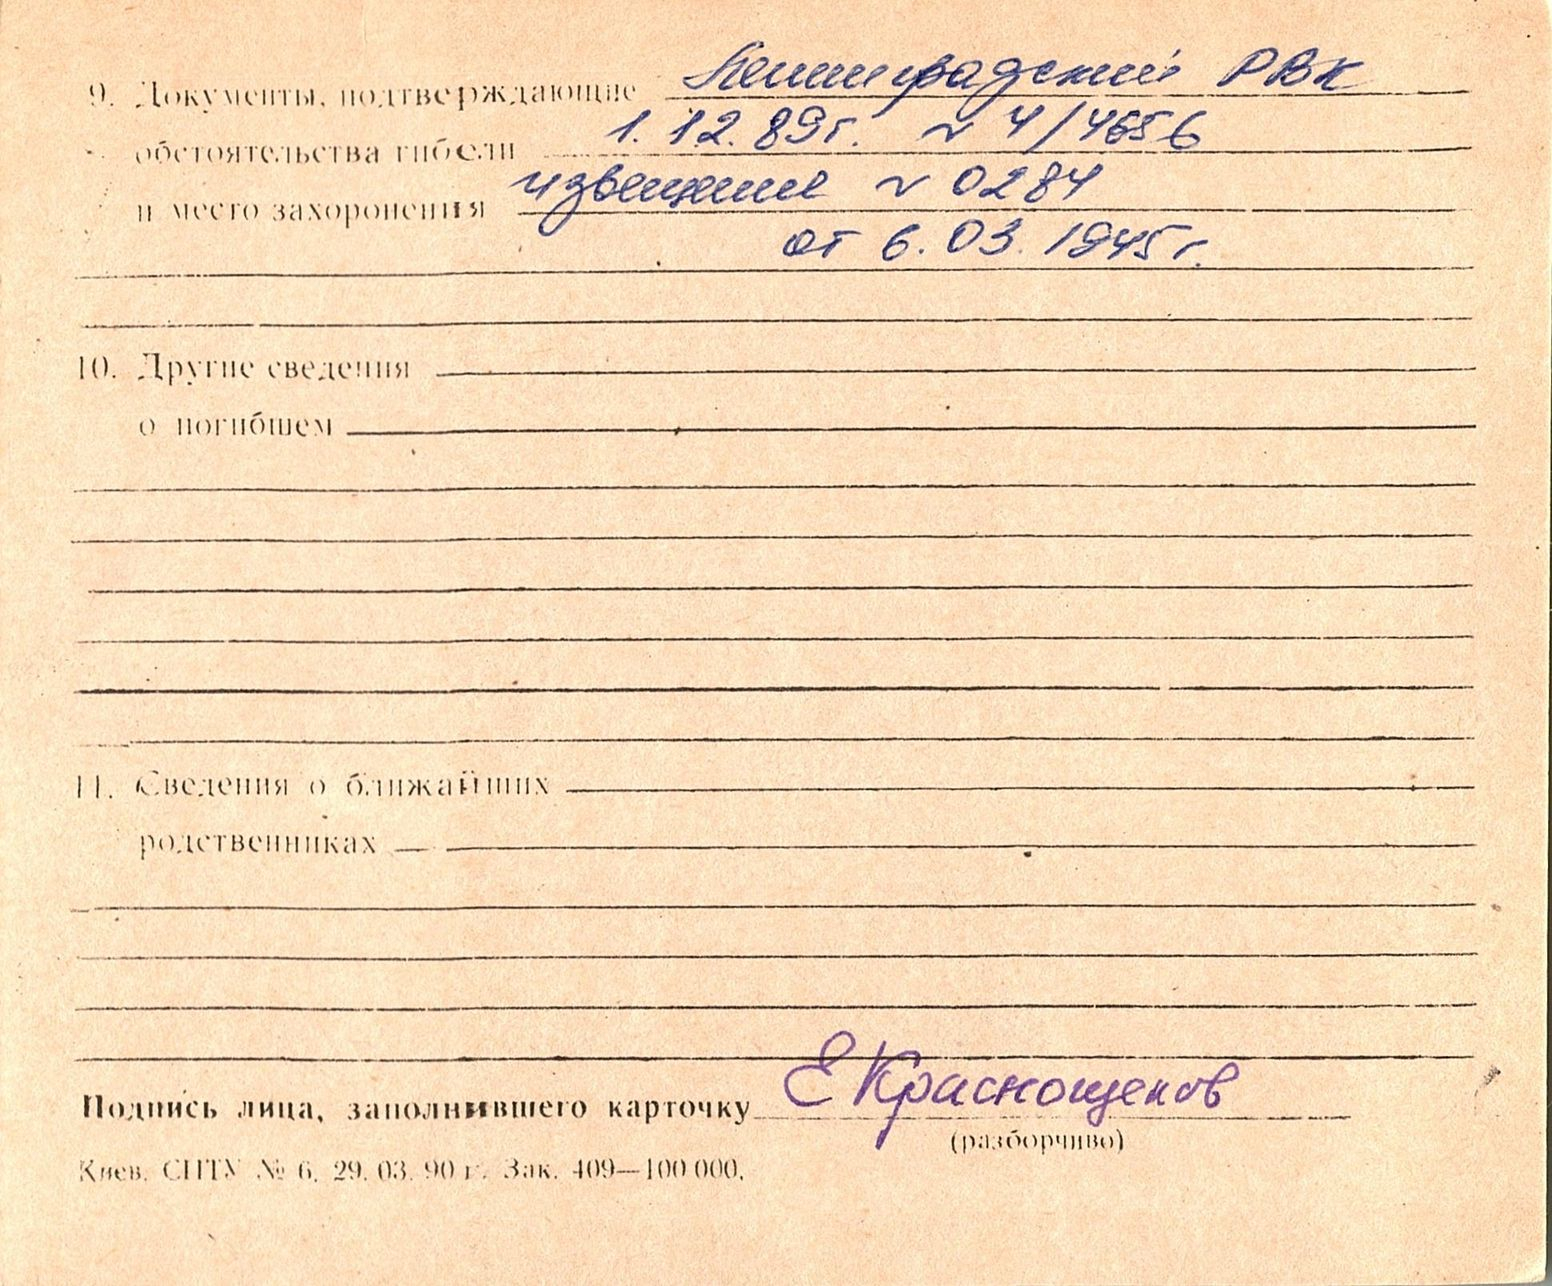 9. Документы, подтверждающие Ленинградский РВК
обстоятельства гибели 1.12.89г. N 4/4656
и место захоронения извещение N 0284
от 6.03.1945г.
10. Другие сведения
о погибшем
11. Сведения о ближайших
родственниках
Подпись лица, заполнившего карточку ЕКраснощеков
(разборчиво)
Киев. СПТУ № 6. 29.03.90 г. Зак. 409—100 000.